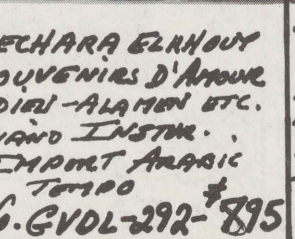 ECHARA ELKHOUY
OUVENIRS D'AMOUR
DIEN-ALAMEN ETC.
IANO INSTR.
IMPORT ARABIC
TEMPO
6.GVDL-292-$895